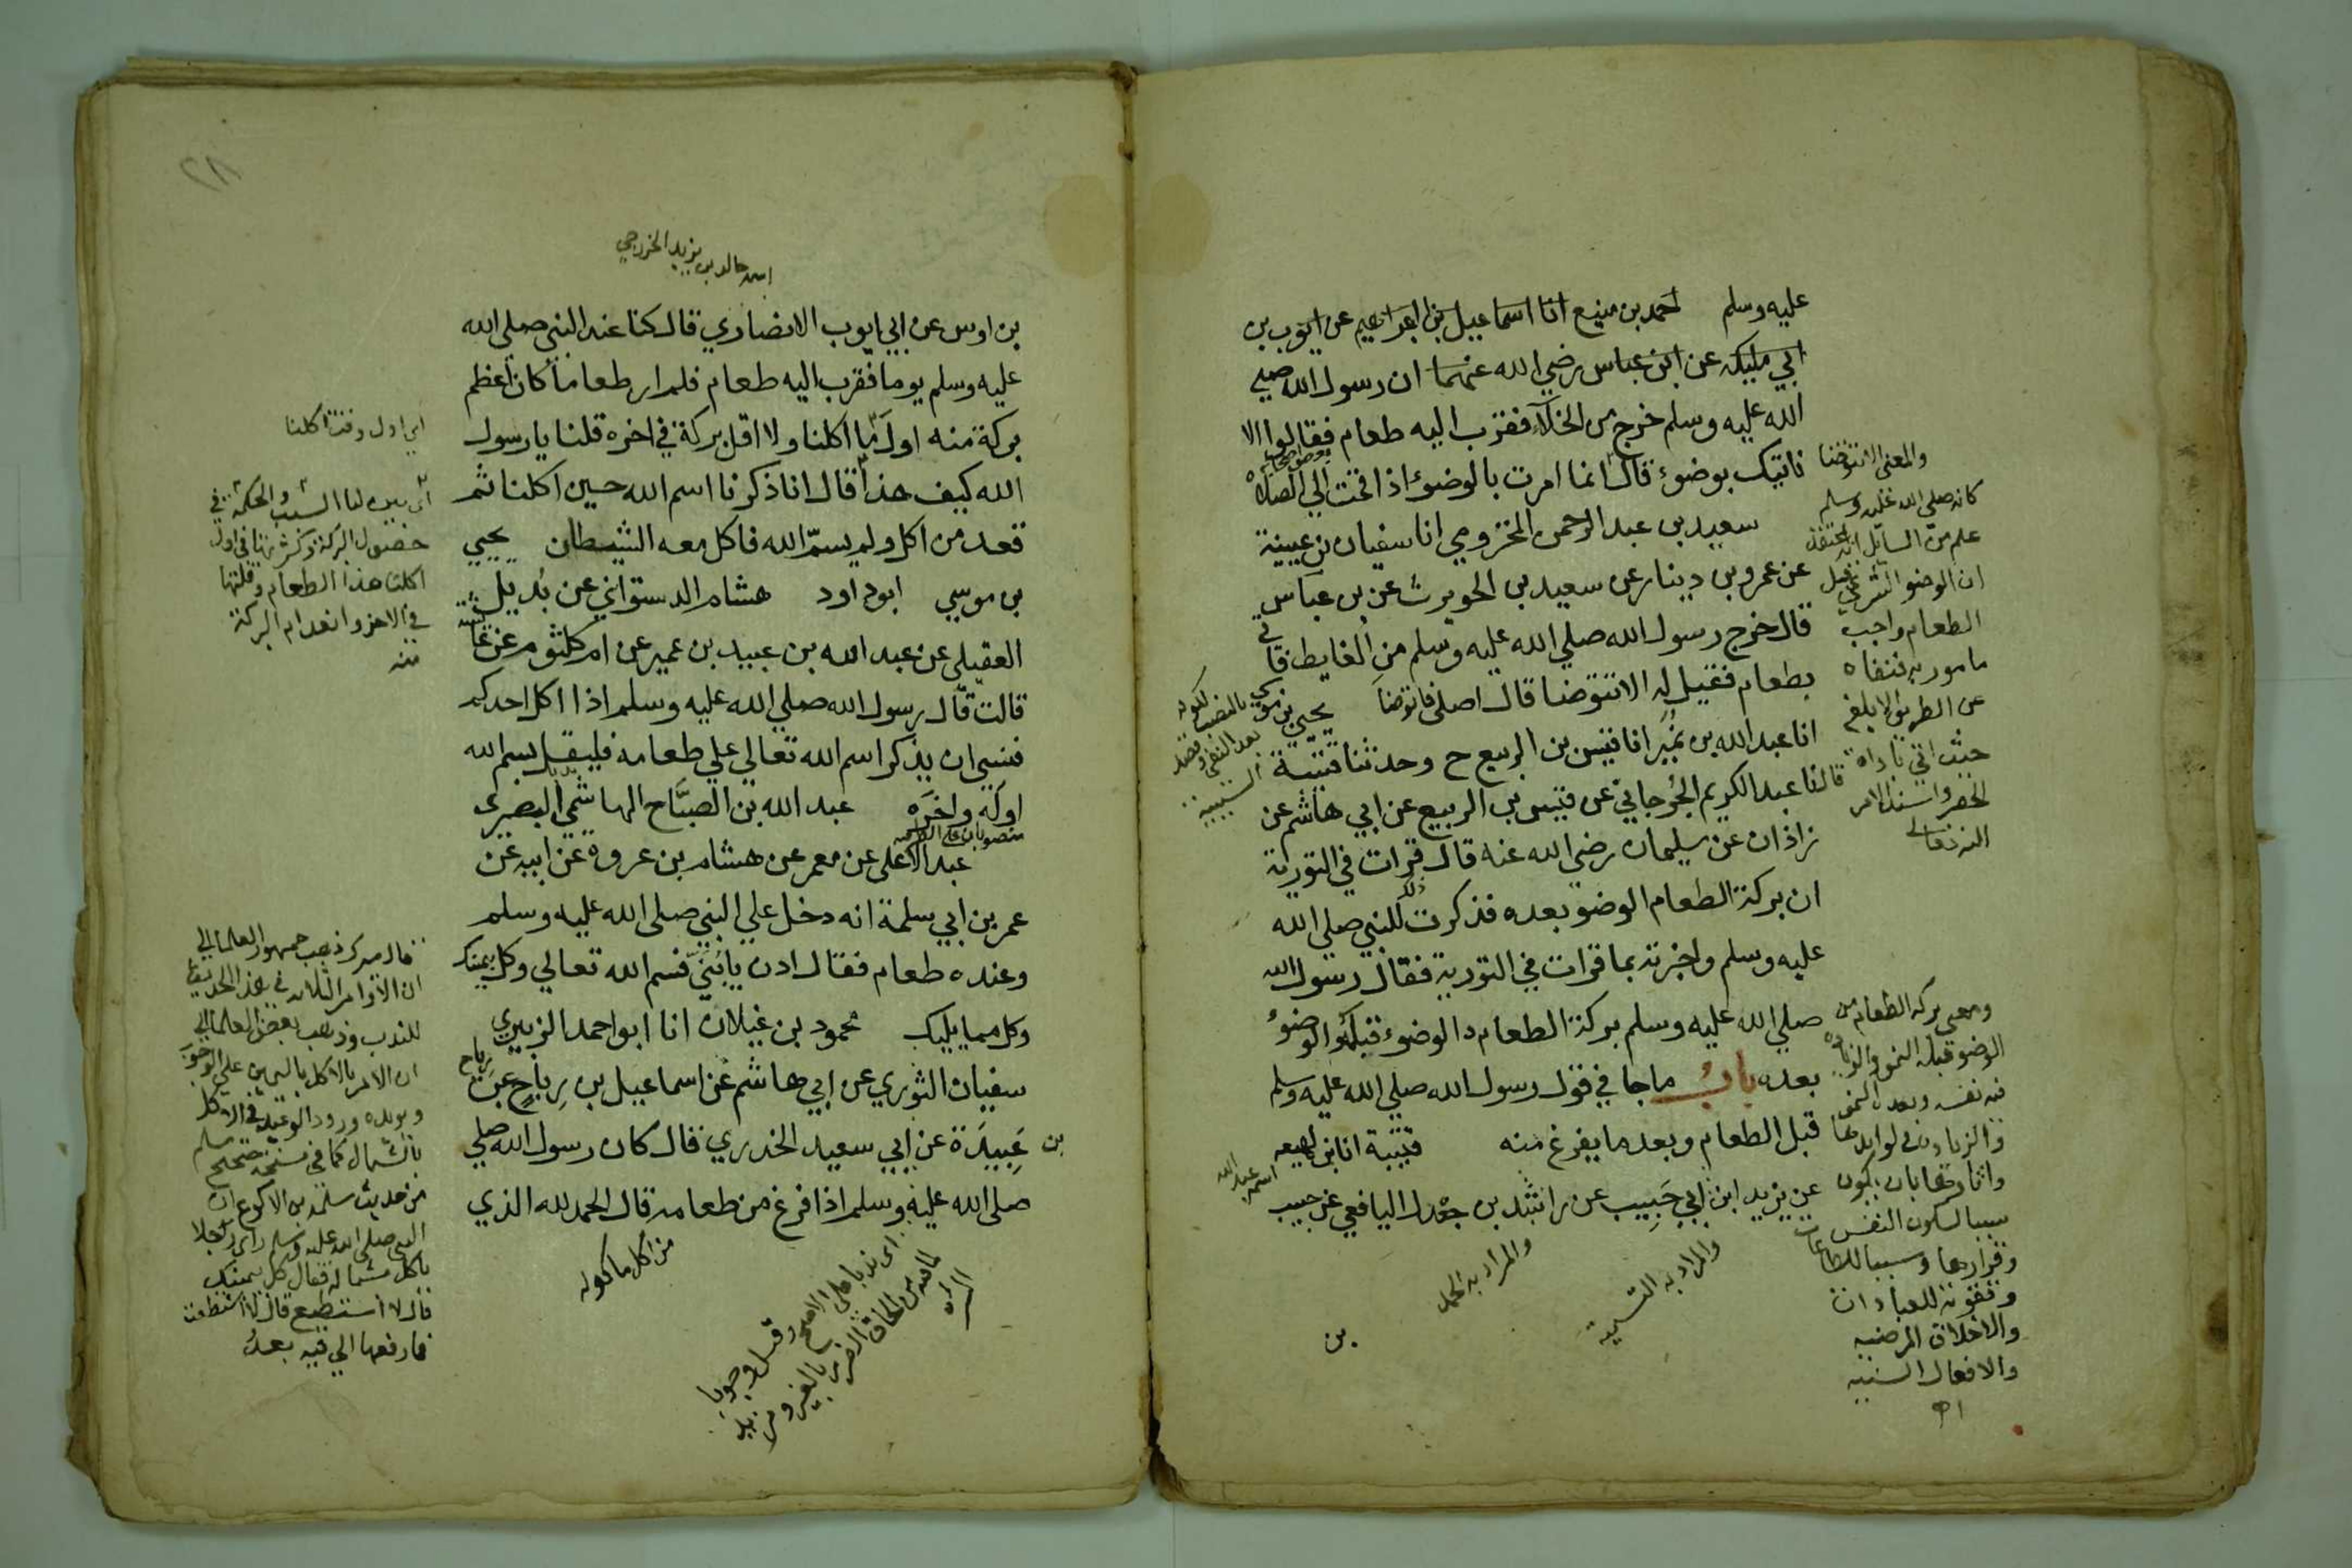 عليه وسلم احمد بن منيع انا اسماعيل بن ابراهيم عن ايوب بن
ابي مليكة عن ابن عباس رضي الله عنهما ان رسول الله صلي
الله عليه وسلم خرج من الخلآء فقرب اليه طعام فقالوا الا
ناتيك بوضوء قال انما امرت بالوضوء اذا قمت الي الصلاة
سعيد بن عبد الرحمن المخزومي انا سفيان بن عيينة
عن عمرو بن دينار عن سعيد بن الحويرث عن بن عباس
قال خرج رسول الله صلي الله عليه وسلم من الغايط فاتي
بطعام فقيل له الا تتوضا قال اصلي فاتوضا يحيي بن موسي
انا عبد الله بن نمير انا قيس بن الربيع ح وحدثنا قتيبة
قال نا عبد الكريم الجرجاني عن قيس بن الربيع عن ابي هاشم عن
زاذان عن سليمان رضي الله عنه قال قرات في التورية
ان بركة الطعام الوضو بعده فذكرت ذلك للنبي صلي الله
عليه وسلم واخبرته بما قرات في التورية فقال رسول الله
صلي الله عليه وسلم بركة الطعام الوضوء قبله والوضوء
بعده باب ما جا في قول رسول الله صلي الله عليه وسلم
قبل الطعام وبعد ما يفرغ منه قتيبة انا ابن لهيعه
عن يزيد ابن ابي حبيب عن راشد بن جندل اليافعي عن حبيب
بن
والمعني الا تتوضا
كانه صلي الله عليه وسلم
علم من السايل انه اعتقد
ان الوضو الشرعي قبل
الطعام واجب
مامور به فنفاه
عن الطريق الابلغ
حيث اتي باداة
الحصر واسند الامر
الله تعالي
بالنصب لكونه
بعد النفي وقصد
السببية
ومعني بركة الطعام من
الوضو قبله النمو والزيادة
فيه نفسه وبعده النمو
والزيادة في فوايدها
واثارها بان يكون
سببا لسكون النفس
وقرارها وسببا للطاعات
وتقوية للعبادات
والاخلاق المرضيه
والافعال السنيه
اسمه عبد الله
والمراد به التسمية
والمراد به الحمد
٢٨
اسمه خالد بن يزيد الخزرجي
بن اوس عن ابي ايوب الانصاري قال كنا عند النبي صلي الله
عليه وسلم يوما فقرب اليه طعام فلم ار طعاما كان اعظم
بركة منه اول ما اكلنا ولا اقل بركة في اخره قلنا يا رسول
الله كيف هذا قال انا ذكرنا اسم الله حين اكلنا ثم
قعد من اكل ولم يسم الله فاكل معه الشيطان يحيي
بن موسي ابو داود هشام الدستواني عن بديل
العقيلي عن عبد الله بن عبيد بن عمير عن ام كلثوم عن عائشة
قالت قال رسول الله صلي الله عليه وسلم اذا اكل احدكم
فنسي ان يذكر اسم الله تعالي علي طعامه فليقل بسم الله
اوله واخره عبد الله بن الصباح الهاشمي البصري
عبد الاعلي عن معمر عن هشام بن عروة عن ابيه عن
عمر بن ابي سلمة انه دخل علي النبي صلي الله عليه وسلم
وعنده طعام فقال ادن يا بني فسم الله تعالي وكل بيمينك
وكل مما يليك محمود بن غيلان انا ابو احمد الزبيري
سفيان الثوري عن ابي هاشم عن اسماعيل بن رباح عن رباح
بن عبيدة عن ابي سعيد الخدري قال كان رسول الله صلي
صلي الله عليه وسلم اذا فرغ من طعامه قال الحمد لله الذي
اي اول وقت اكلنا
اي بين لنا السبب والحكمة في
حصول البركة وكثرتها في اول
اكلنا هذا الطعام وقلتها
في الاخر وانعدام البركة
منه
قال ميرك ذهب جمهور العلما الي
ان الاوامر الثلاثه في هذا الحديث
للندب وذهب بعض العلما الي
ان الامر بالاكل باليمين علي الوجوب
ويويده ورود الوعيد في الاكل
بالشمال كما في صحيح مسلم
من حديث سلمة بن الاكوع ان
النبي صلي الله عليه وسلم راي رجلا
ياكل بشماله فقال كل بيمينك
قال لا استطيع قال لا استطعت
فما رفعها الي فيه بعد
من اكل ماكوله
اي ندبا علي الاصح وقيل وجوبا
لما فيه من الحاق الضرر بالغير ومزيد
الشره